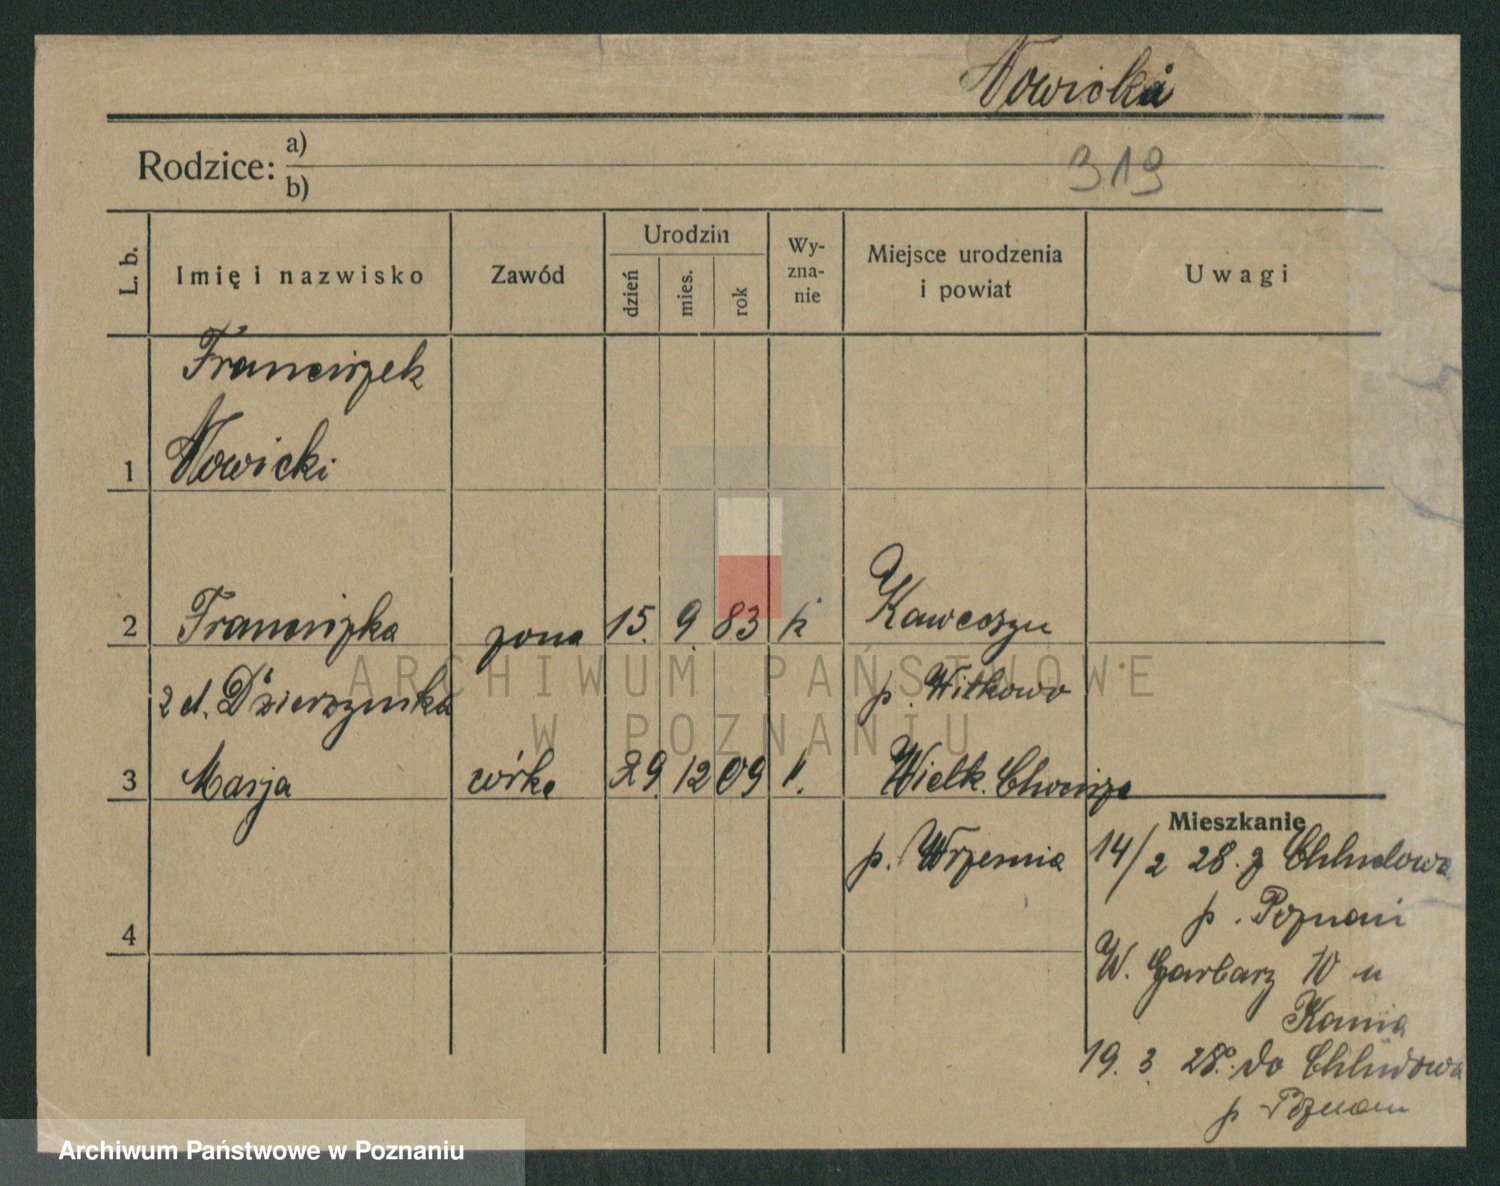 Nowicka
Rodzice: a)
b)
319
L. b.
Imię i nazwisko
Zawód
Urodzin
dzień
mies.
rok
Wy-
zna-
nie
Miejsce urodzenia
i powiat
Uwagi
Franciszek
1 Nowicki
2 Franciszka żona 15. 9. 83 k
2 d. Dzierzynska p. Witkowo
3 Marja córka 29. 12 09 ". Wielk.
Mieszkanie
p. Września 14/2 28. z Chludowa
p. Poznań
4
W. Garbary 10 u
Kania
19. 3. 28. do Chludowa
p Poznań
ARCHIWUM PAŃSTWOWE
W POZNANIU
Archiwum Państwowe w Poznaniu